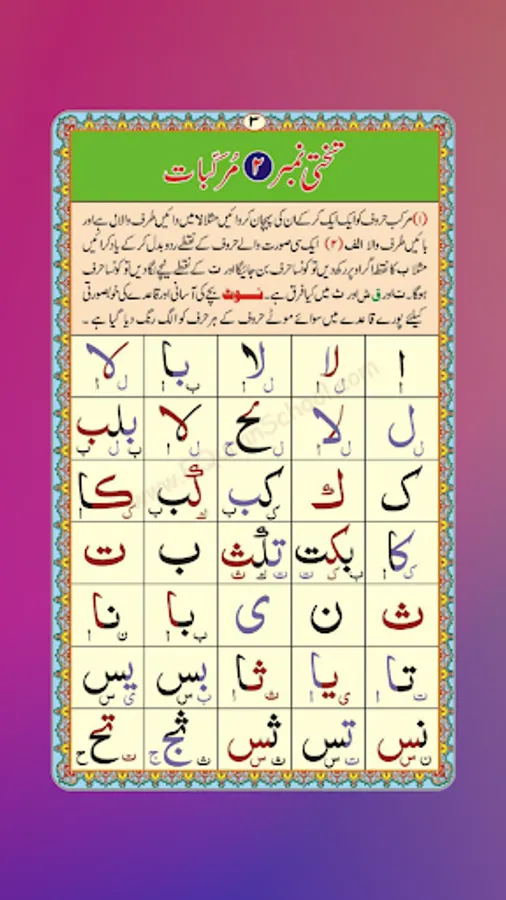 ۳
تختی نمبر ۲ مُرکّبات
(۱) مرکب حروف کو ایک ایک کرکے ان کی پہچان کروائیں مثلا لا میں دائیں طرف والا ل ہے اور
بائیں طرف والا الف (۲) ایک سی صورت والے حروف کے نقطے ردوبدل کرکے یاد کرائیں
مثلا ب کا نقطہ اگر اوپر رکھ دیں تو کونسا حرف بن جائیگا اور ت کے نقطے نیچے لگا دیں تو کونسا حرف
ہوگا۔ ت اور ق ض اور ث میں کیا فرق ہے۔ نوٹ بچے کی آسانی اور قاعدے کی خوبصورتی
کیلئے پورے قاعدے میں سوائے موٹے حروف کے ہر حرف کو الگ رنگ دیا گیا ہے۔
ا لا لا با لا
ا ل ا ل ا ب ا ل ا
ل لا لح لا بلب
ل ل ا ل ح ل ا ب ل ب
ک ك کب كب کا
ک ب ك ب ک ا
کا بکت تكث ب ت
ک ا ب ک ت ت ك ث
ث ن ی با نا
ب ا ن ا
تا یا ثا بس یس
ت ا ی ا ث ا ب س ی س
نس تس ثس ثج تح
ن س ت س ث س ث ج ت ح